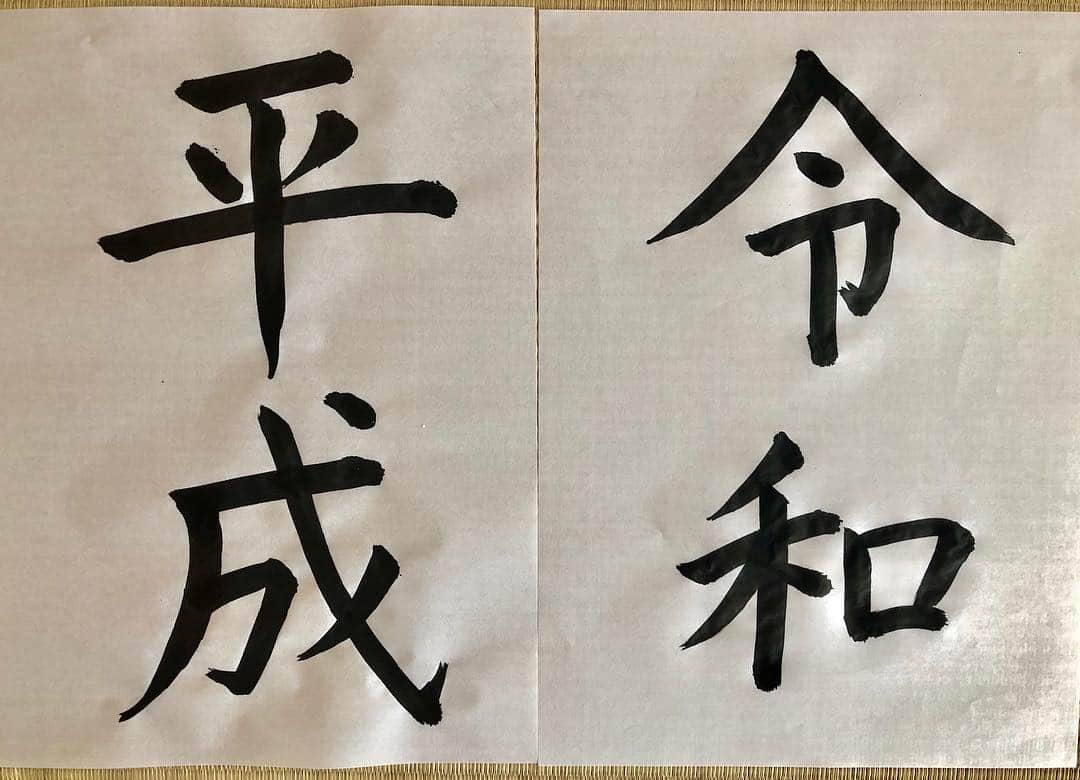 令和
平成